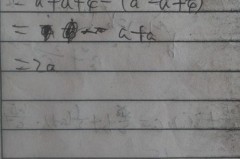 = a+a+4- (a -a+4)
= a+a
=2a